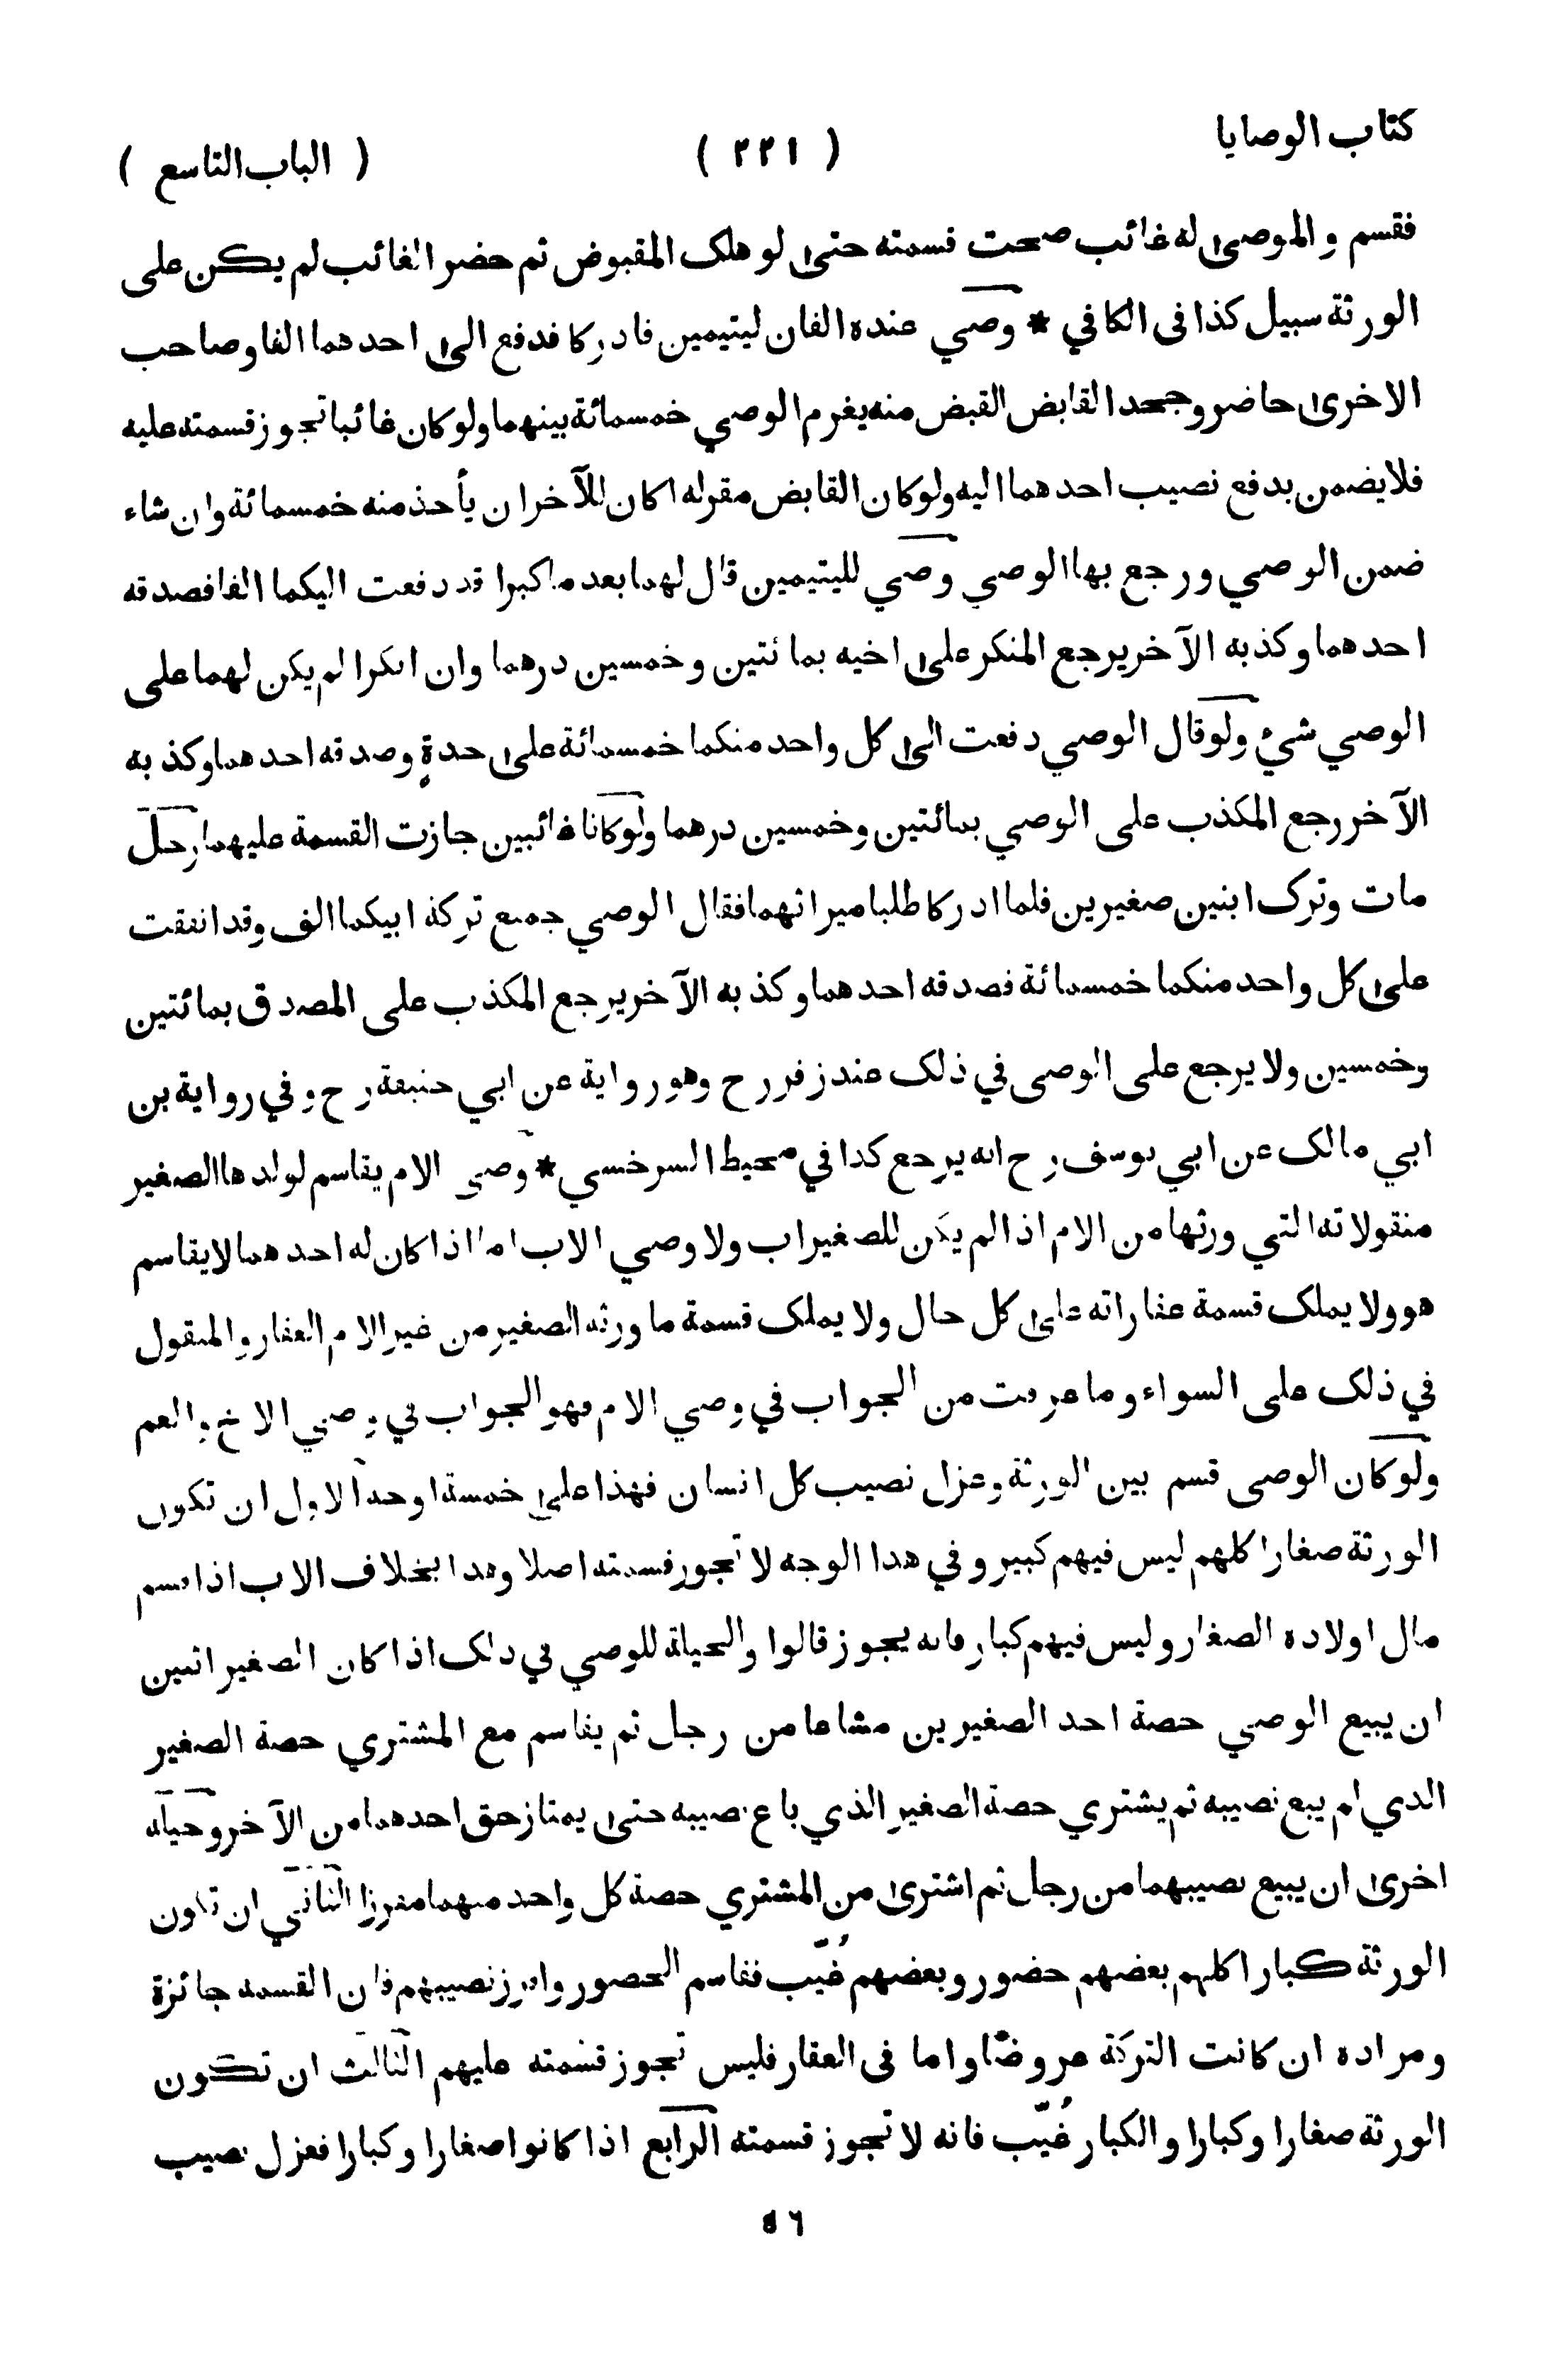 كتاب الوصايا ( ٢٢١ ) ( الباب التاسع )
فقسم والموصى له غائب صحت قسمته حتى لو هلك المقبوض ثم حضر الغائب لم يكن على
الورثة سبيل كذا فى الكافي * وصي عنده الفان ليتيمين فادركا فدفع الى احدهما الفا وصاحب
الاخرى حاضر وجحد القابض القبض منه يغرم الوصي خمسمائة بينهما ولو كان غائبا تجوز قسمته عليه
فلا يضمن بدفع نصيب احدهما اليه ولو كان القابض مقر له اكان للآخر ان يأخذ منه خمسمائة وان شاء
ضمن الوصي ورجع بها الوصي وصي لليتيمين قال لهما بعد ما كبرا قد دفعت اليكما الفا فصدقه
احدهما وكذبه الآخر يرجع المنكر على اخيه بمائتين وخمسين درهما وان انكرا لم يكن لهما على
الوصي شئ ولو قال الوصي دفعت الى كل واحد منكما خمسمائة على حدة وصدقه احدهما وكذبه
الآخر رجع المكذب على الوصي بمائتين وخمسين درهما ولو كانا غائبين جازت القسمة عليهما رجل
مات وترك ابنين صغيرين فلما ادركا طلبا ميراثهما فقال الوصي جميع تركة ابيكما الف وقد انفقت
على كل واحد منكما خمسمائة فصدقه احدهما وكذبه الآخر يرجع المكذب على المصدق بمائتين
وخمسين ولا يرجع على الوصى في ذلك عند زفر رح وهو رواية عن ابي حنيفة رح وفي رواية بن
ابي مالك عن ابي يوسف رح انه يرجع كذا في محيط السرخسي * وصي الام يقاسم لولدها الصغير
منقولاته التي ورثها من الام اذا لم يكن للصغير اب ولا وصي الاب اما اذا كان له احدهما لا يقاسم
هو ولا يملك قسمة عقاراته على كل حال ولا يملك قسمة ما ورثه الصغير من غير الام العقار والمنقول
في ذلك على السواء وما عرفت من الجواب في وصي الام فهو الجواب في وصي الاخ والعم
ولو كان الوصى قسم بين الورثة وعزل نصيب كل انسان فهذا على خمسة اوجه الاول ان تكون
الورثة صغارا كلهم ليس فيهم كبير وفي هذا الوجه لا تجوز قسمته اصلا وهذا بخلاف الاب اذا قسم
مال اولاده الصغار وليس فيهم كبار فانه يجوز قالوا والحيلة للوصي في ذلك اذا كان الصغير اثنين
ان يبيع الوصي حصة احد الصغيرين مشاعا من رجل ثم يقاسم مع المشتري حصة الصغير
الذي لم يبع نصيبه ثم يشتري حصة الصغير الذي باع نصيبه حتى يمتاز حق احدهما من الآخر وحيلة
اخرى ان يبيع نصيبهما من رجل ثم اشترى من المشتري حصة كل واحد منهما مفرزا الثاني ان تكون
الورثة كبارا كلهم بعضهم حضور وبعضهم غُيّب فقاسم الحضور وافرز نصيبهم فان القسمة جائزة
ومراده ان كانت التركة عروضًا واما فى العقار فليس تجوز قسمته عليهم الثالث ان تكون
الورثة صغارا وكبارا والكبار غُيّب فانه لا تجوز قسمته الرابع اذا كانوا صغارا وكبارا فعزل نصيب
٥٦